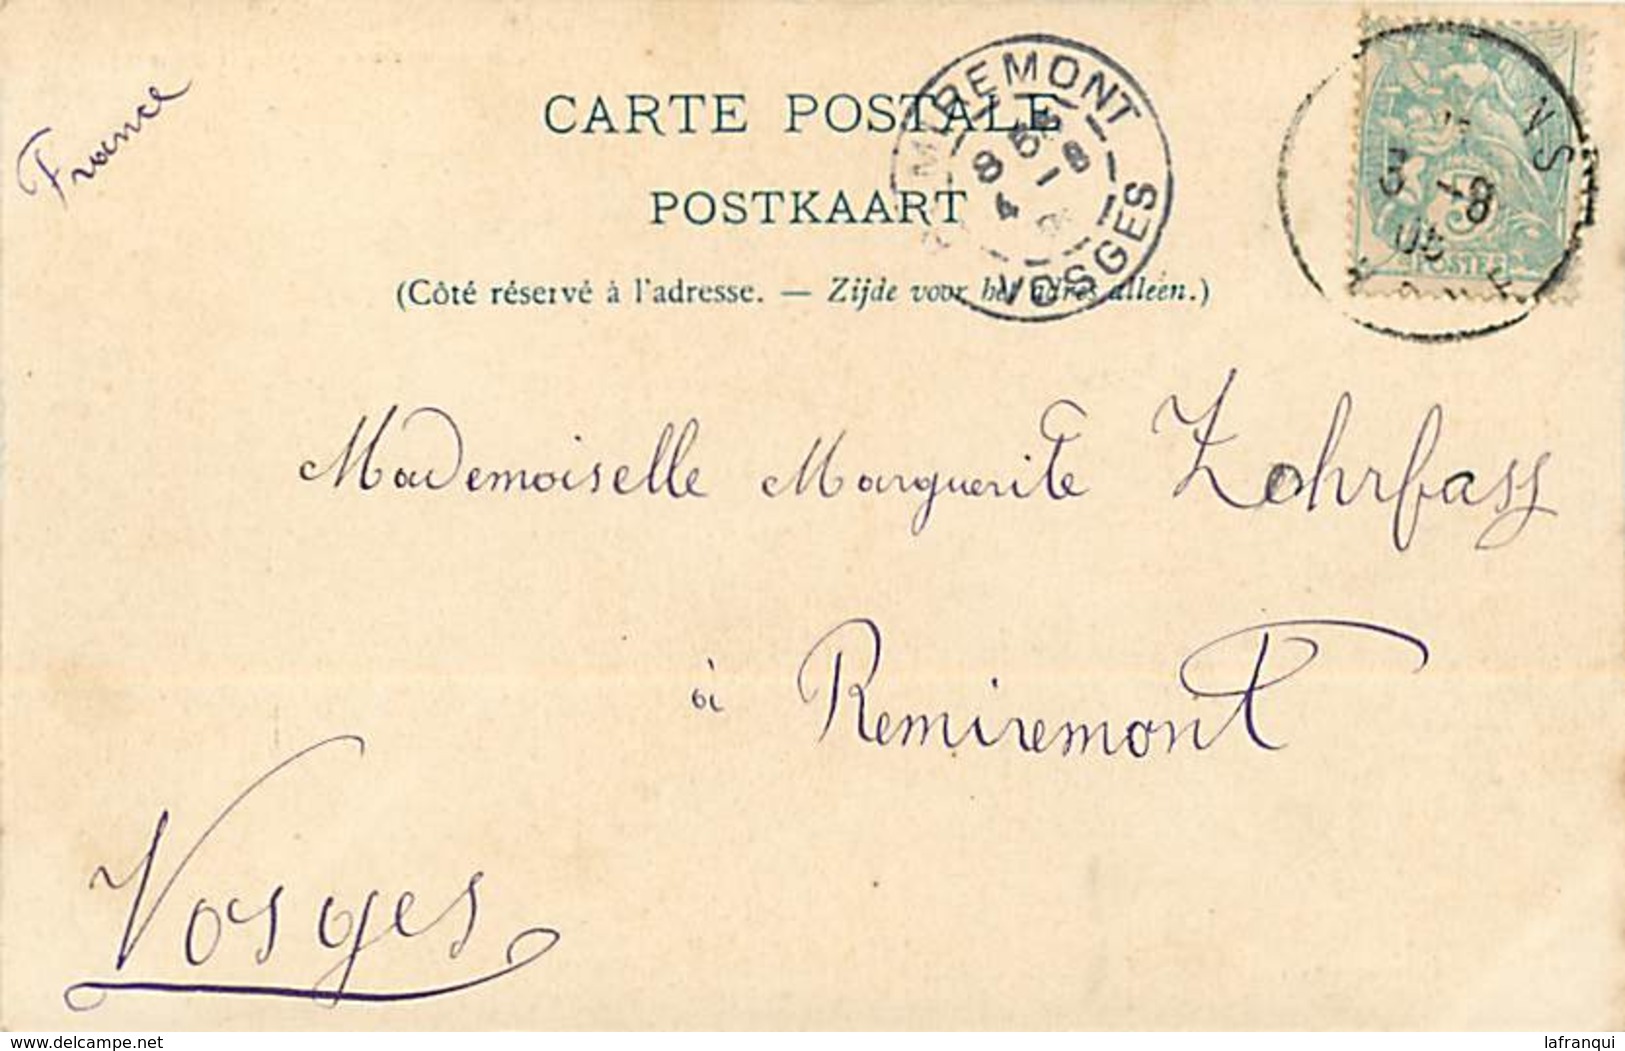 France
CARTE POSTALE
POSTKAART
(Côté réservé à l'adresse. — Zijde voor het adres alleen.)
MIREMONT
8 5
4 1 8
VOSGES
VS
3 -8
05
5
POSTES
Mademoiselle Marguerite Zohrfass
à Remiremont
Vosges
delcampe.net
lafranqui